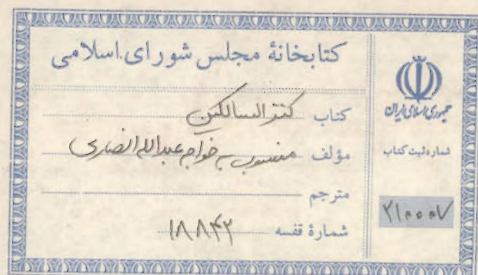 کتابخانهٔ مجلس شورای اسلامی
کتاب کنز السالکین
مؤلف منسوب به خواجه عبدالله انصاری
مترجم
شمارهٔ قفسه ۱۸۸۴۲
جمهوری اسلامی ایران
شماره ثبت کتاب
۲۱۰۰۰۷